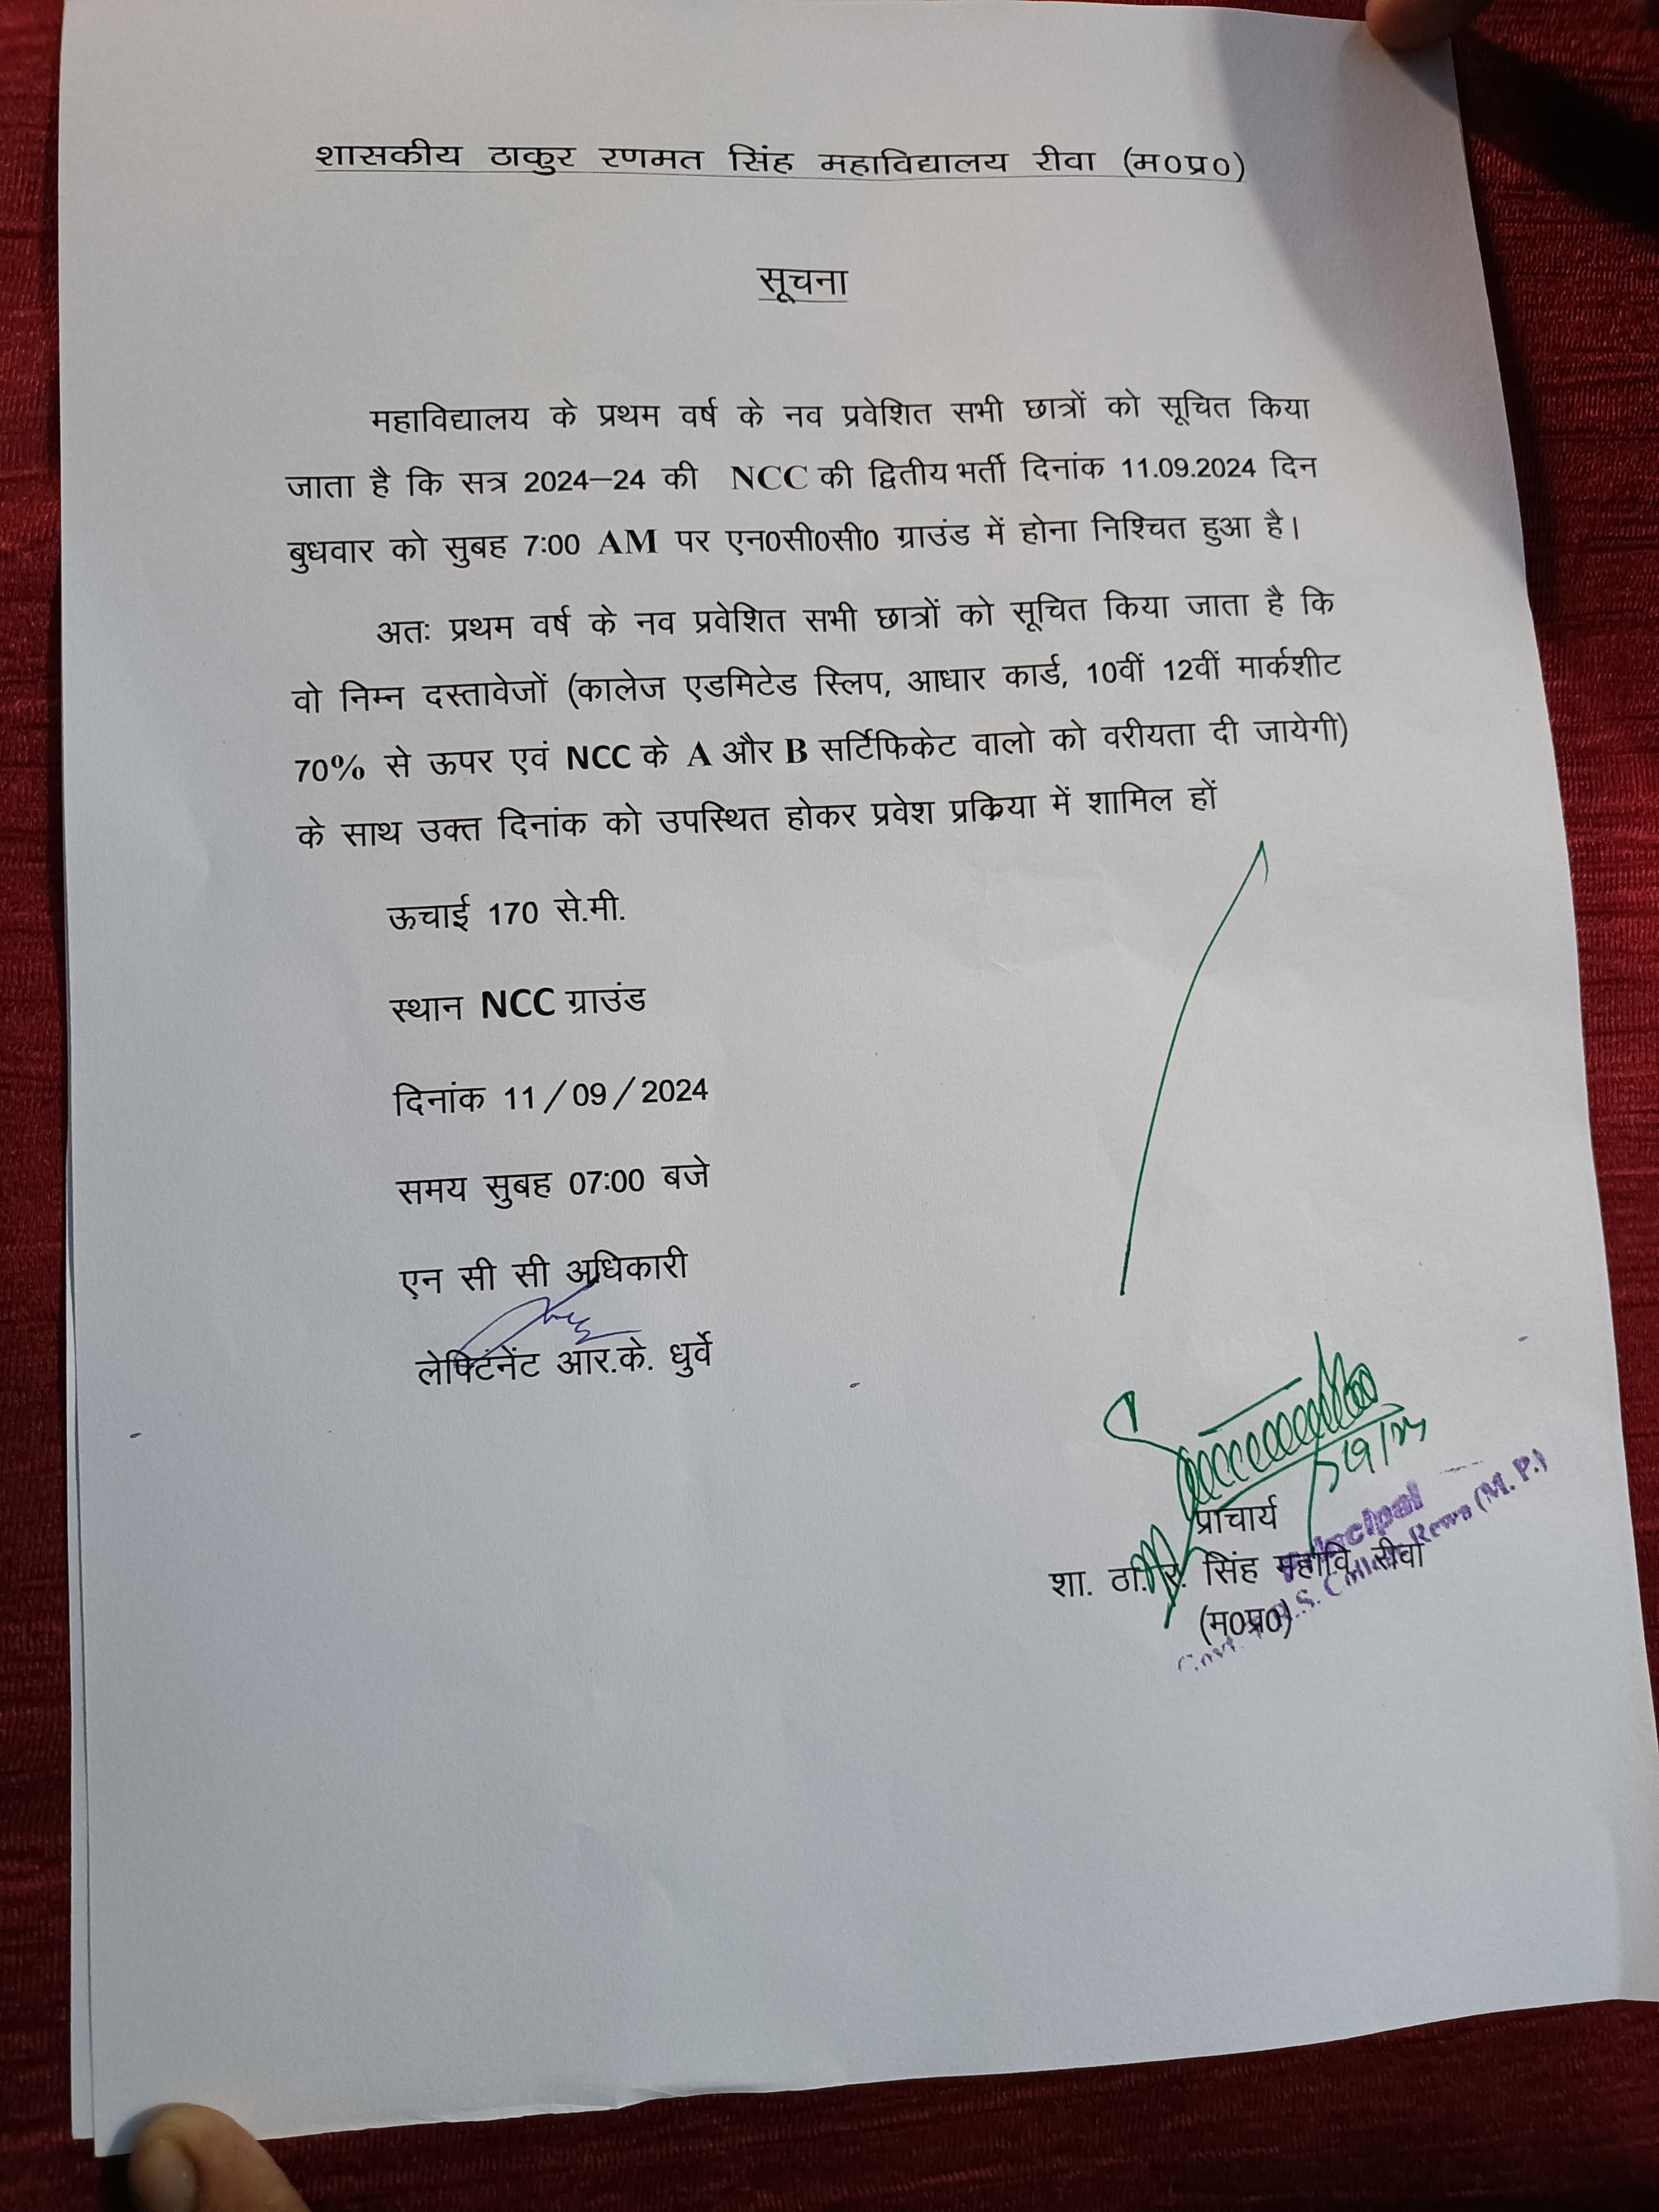 शासकीय ठाकुर रणमत सिंह महाविद्यालय रीवा (म0प्र0)
सूचना
महाविद्यालय के प्रथम वर्ष के नव प्रवेशित सभी छात्रों को सूचित किया
जाता है कि सत्र 2024–24 की NCC की द्वितीय भर्ती दिनांक 11.09.2024 दिन
बुधवार को सुबह 7:00 AM पर एन0सी0सी0 ग्राउंड में होना निश्चित हुआ है।
अतः प्रथम वर्ष के नव प्रवेशित सभी छात्रों को सूचित किया जाता है कि
वो निम्न दस्तावेजों (कालेज एडमिटेड स्लिप, आधार कार्ड, 10वीं 12वीं मार्कशीट
70% से ऊपर एवं NCC के A और B सर्टिफिकेट वालो को वरीयता दी जायेगी)
के साथ उक्त दिनांक को उपस्थित होकर प्रवेश प्रक्रिया में शामिल हों
ऊचाई 170 से.मी.
स्थान NCC ग्राउंड
दिनांक 11/09/2024
समय सुबह 07:00 बजे
एन सी सी अधिकारी
लेफ्टिनेंट आर.के. धुर्वे
प्राचार्य
Principal
शा. ठा. र. सिंह महावि. रीवा
(म0प्र0)
Rewa (M. P.)